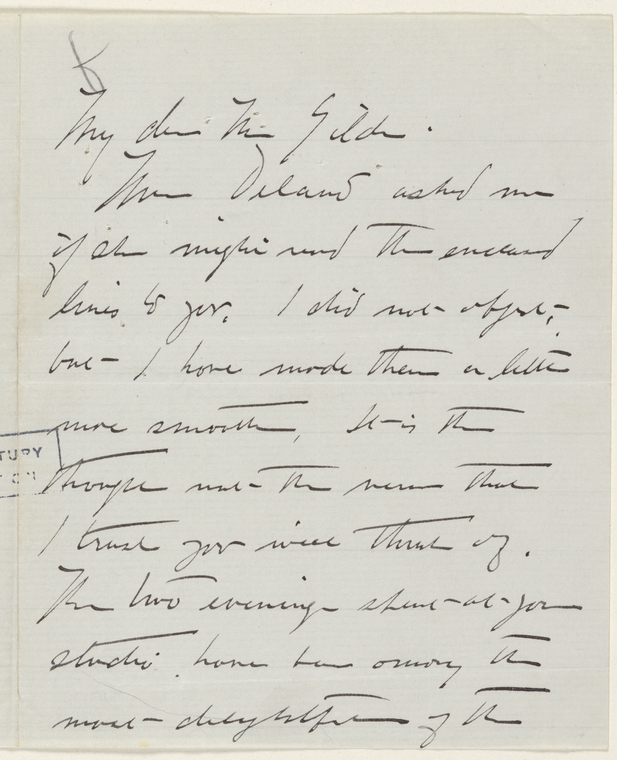 My dear Mr Gilder.
Miss Deland asked me
if she might send the enclosed
lines to you. I did not object,
but I have made them a little
more smooth. It is the
TURY
thought not the verse that
I trust you will think of.
The two evenings spent at your
studio have been among the
most delightful of the